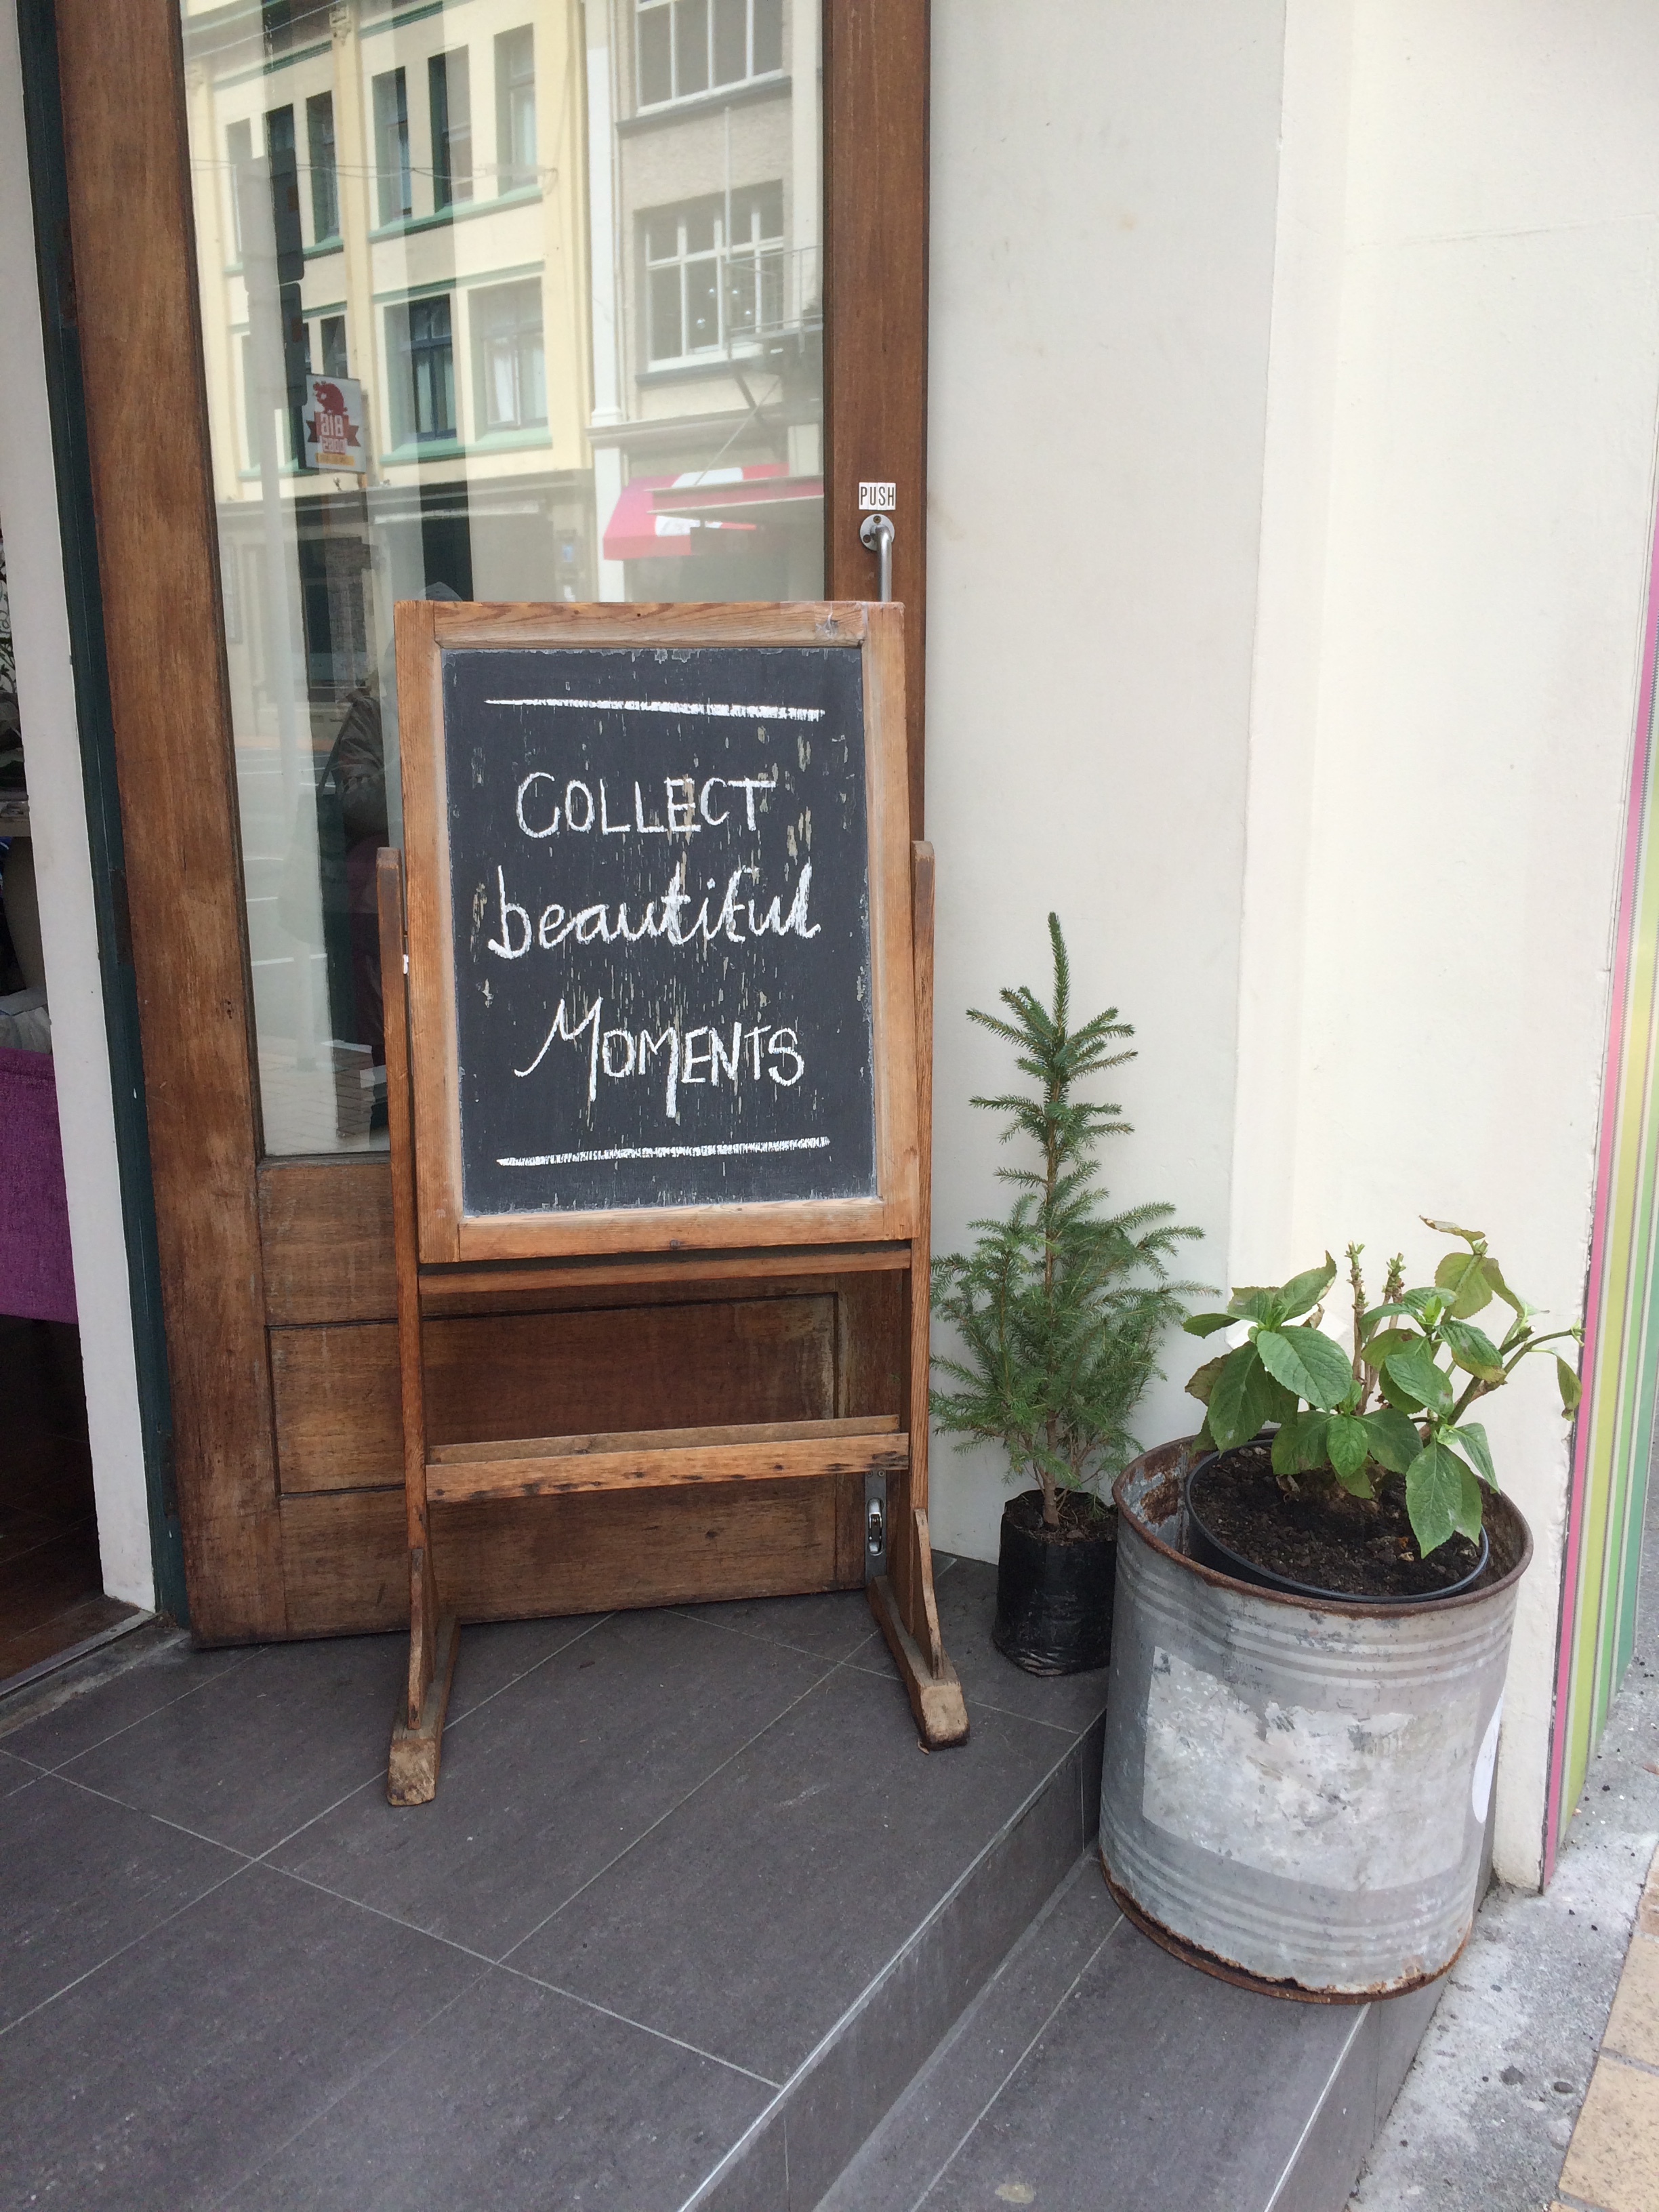 PUSH
COLLECT
beautiful
MOMENTS